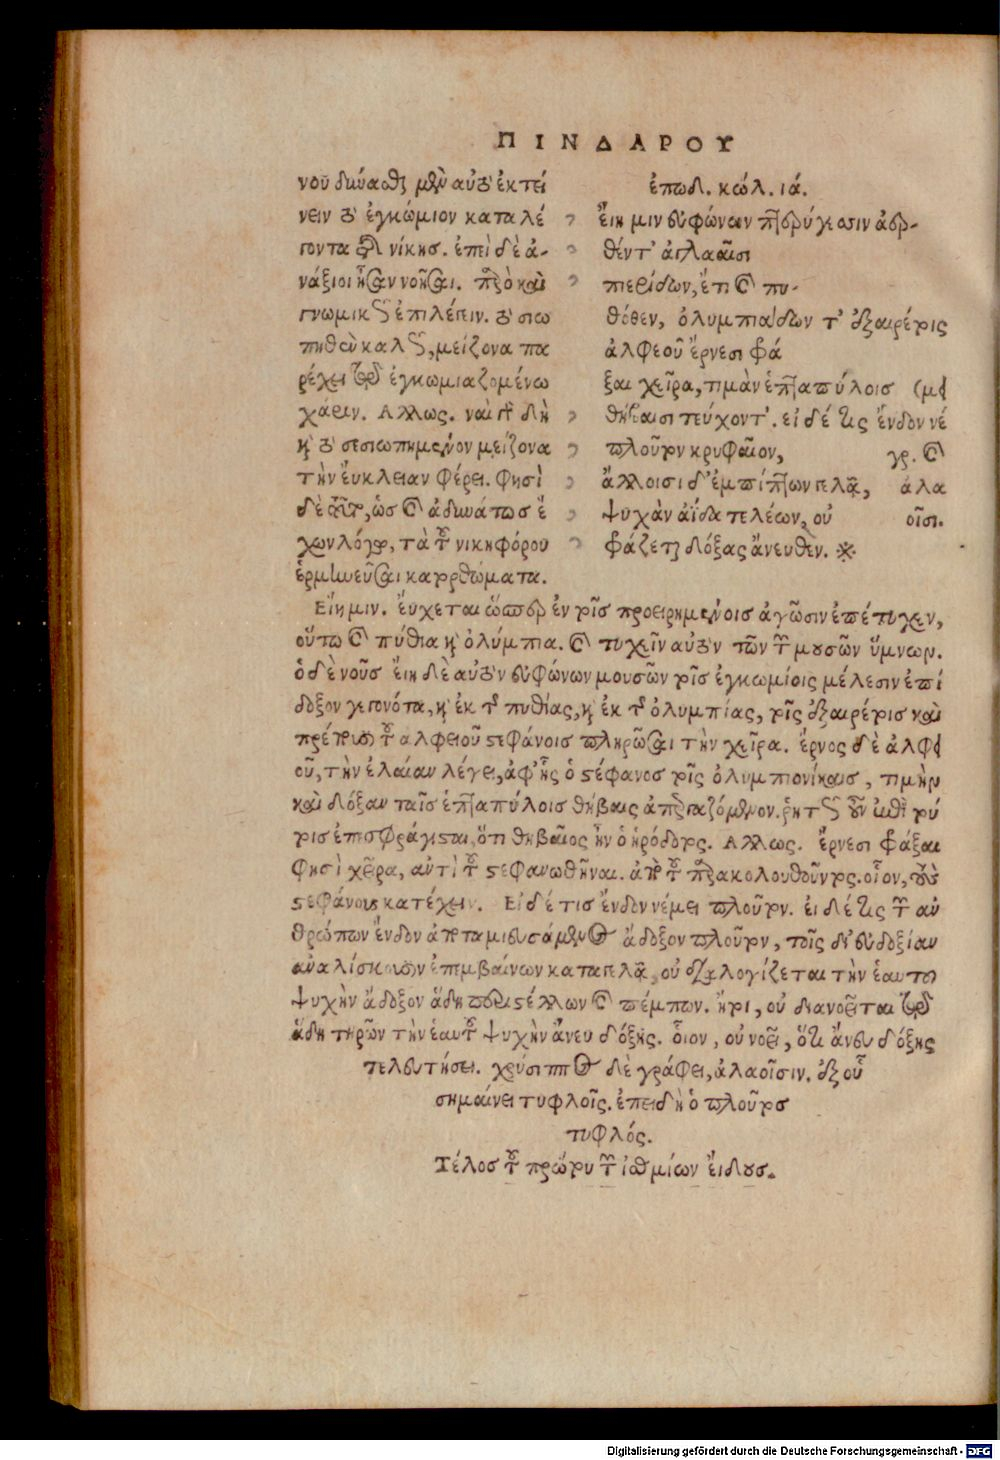 ΠΙΝΔΑΡΟΥ
νου δύναϑαι μὲν αὐτὸν ἐκτεί
νειν τὸ ἐγκώμιον καταλέ
γοντα τὰς νίκης. ἐπεὶ δὲ ἀ-
γνωμικῶς ἐπιλέγειν. τὸ σιω
πηθὲν καλῶς, μείζονα πα
ρέχει τῷ ἐγκωμιαζομένῳ
χάριν. Αλλως. ναὶ μὴν δὴ
καὶ τὸ σεσιωπημένον μείζονα
τὴν ἔυκλειαν φέρει. φησὶ
δὲ ταῦτα, ὡς τοῦ ἀδυνάτως ἔ
χων λόγῳ, τὰ τοῦ νικηφόρου
ἑρμηνεῦσαι κατορθώματα.
ἐπωδ. κώλ. ιά.
ἔιη μιν εὐφώνων πτερύγεσσιν ἀερ-
θέντ' ἀγλααῖσι
πιερίδων, ἔτι καὶ πυ-
θόθεν, ὀλυμπιάδων τ' ἐξαιρέτοις
ἀλφεοῦ ἔρνεσι φρά
ξαι χεῖρα, τιμὰν ἑπταπύλοις
θήβαισι τεύχοντ'. εἰ δέ τις ἔνδον νέ
(μει
πλοῦτον κρυφαῖον,
ἄλλοισι δ' ἐμπίπτων γελᾷ,
ψυχὰν ἀΐδα τελέων, οὐ
φράζεται δόξας ἄνευθεν. ※
γρ. καὶ
ἀλα
οῖσι.
Εἴη μιν. ἔυχεται ὥσπερ ἐν τοῖς προειρημένοις ἀγῶσιν ἐπέτυχεν,
οὕτω καὶ πύθια καὶ ὀλύμπια. καὶ τυχεῖν αὐτὸν τῶν τῶν μουσῶν ὕμνων.
ὁ δὲ νοῦς ἔιη δὲ αὐτὸν εὐφώνων μουσῶν τοῖς ἐγκωμίοις μέλεσιν ἐπί
δοξον γεγονότα, καὶ ἐκ τῆς πυθίας, καὶ ἐκ τῆς ὀλυμπίας, τοῖς ἐξαιρέτοις καὶ
πρέπουσι τοῦ ἀλφειοῦ στεφάνοις πληρῶσαι τὴν χεῖρα. ἔρνος δὲ ἀλφει
οῦ, τὴν ἐλαίαν λέγει, ἀφ' ἧς ὁ στέφανος τοῖς ὀλυμπιονίκαις, τιμὴν
καὶ δόξαν ταῖς ἑπταπύλοις θήβαις
τοις ἐπεσφράγισται, ὅτι θηβαῖος ἦν ὁ ἡρόδοτος. Αλλως. ἔρνεσι φράξαι
φησὶ χεῖρα, αὐτὶ τοῦ στεφανωθῆναι. ἀπὸ τοῦ παρακολουθοῦντος. οἷον, τοὺς
στεφάνους κατέχειν. Εἰ δέ τις ἔνδον νέμει πλοῦτον. ἐι δέ τις τῶν ἀν
θρώπων ἔνδον ἀποταμιευσάμενος ἄδοξον πλοῦτον, τοῖς δι' εὐδοξίαν
ἀναλίσκουσιν ἐπεμβαίνων καταγελᾷ, οὐ διαλογίζεται τὴν ἑαυτοῦ
ψυχὴν ἄδοξον ἅδῃ περιστέλλων καὶ πέμπων. ἤτοι, οὐ διανοεῖται τῷ
ἅδη τηρῶν τὴν ἑαυτοῦ ψυχὴν ἄνευ δόξης. ὅιον, οὐ νοεῖ, ὅτι ἄνευ δόξης
τελευτήσει. χρύσιππος δὲ γράφει, ἀλαοῖσιν. ἐξ οὗ
σημαίνει τυφλοῖς. ἐπειδὴ ὁ πλοῦτος
τυφλός.
Τέλος τοῦ πρώτου τῶν ἰσθμίων ἔιδους.
Digitalisierung gefördert durch die Deutsche Forschungsgemeinschaft - DFG